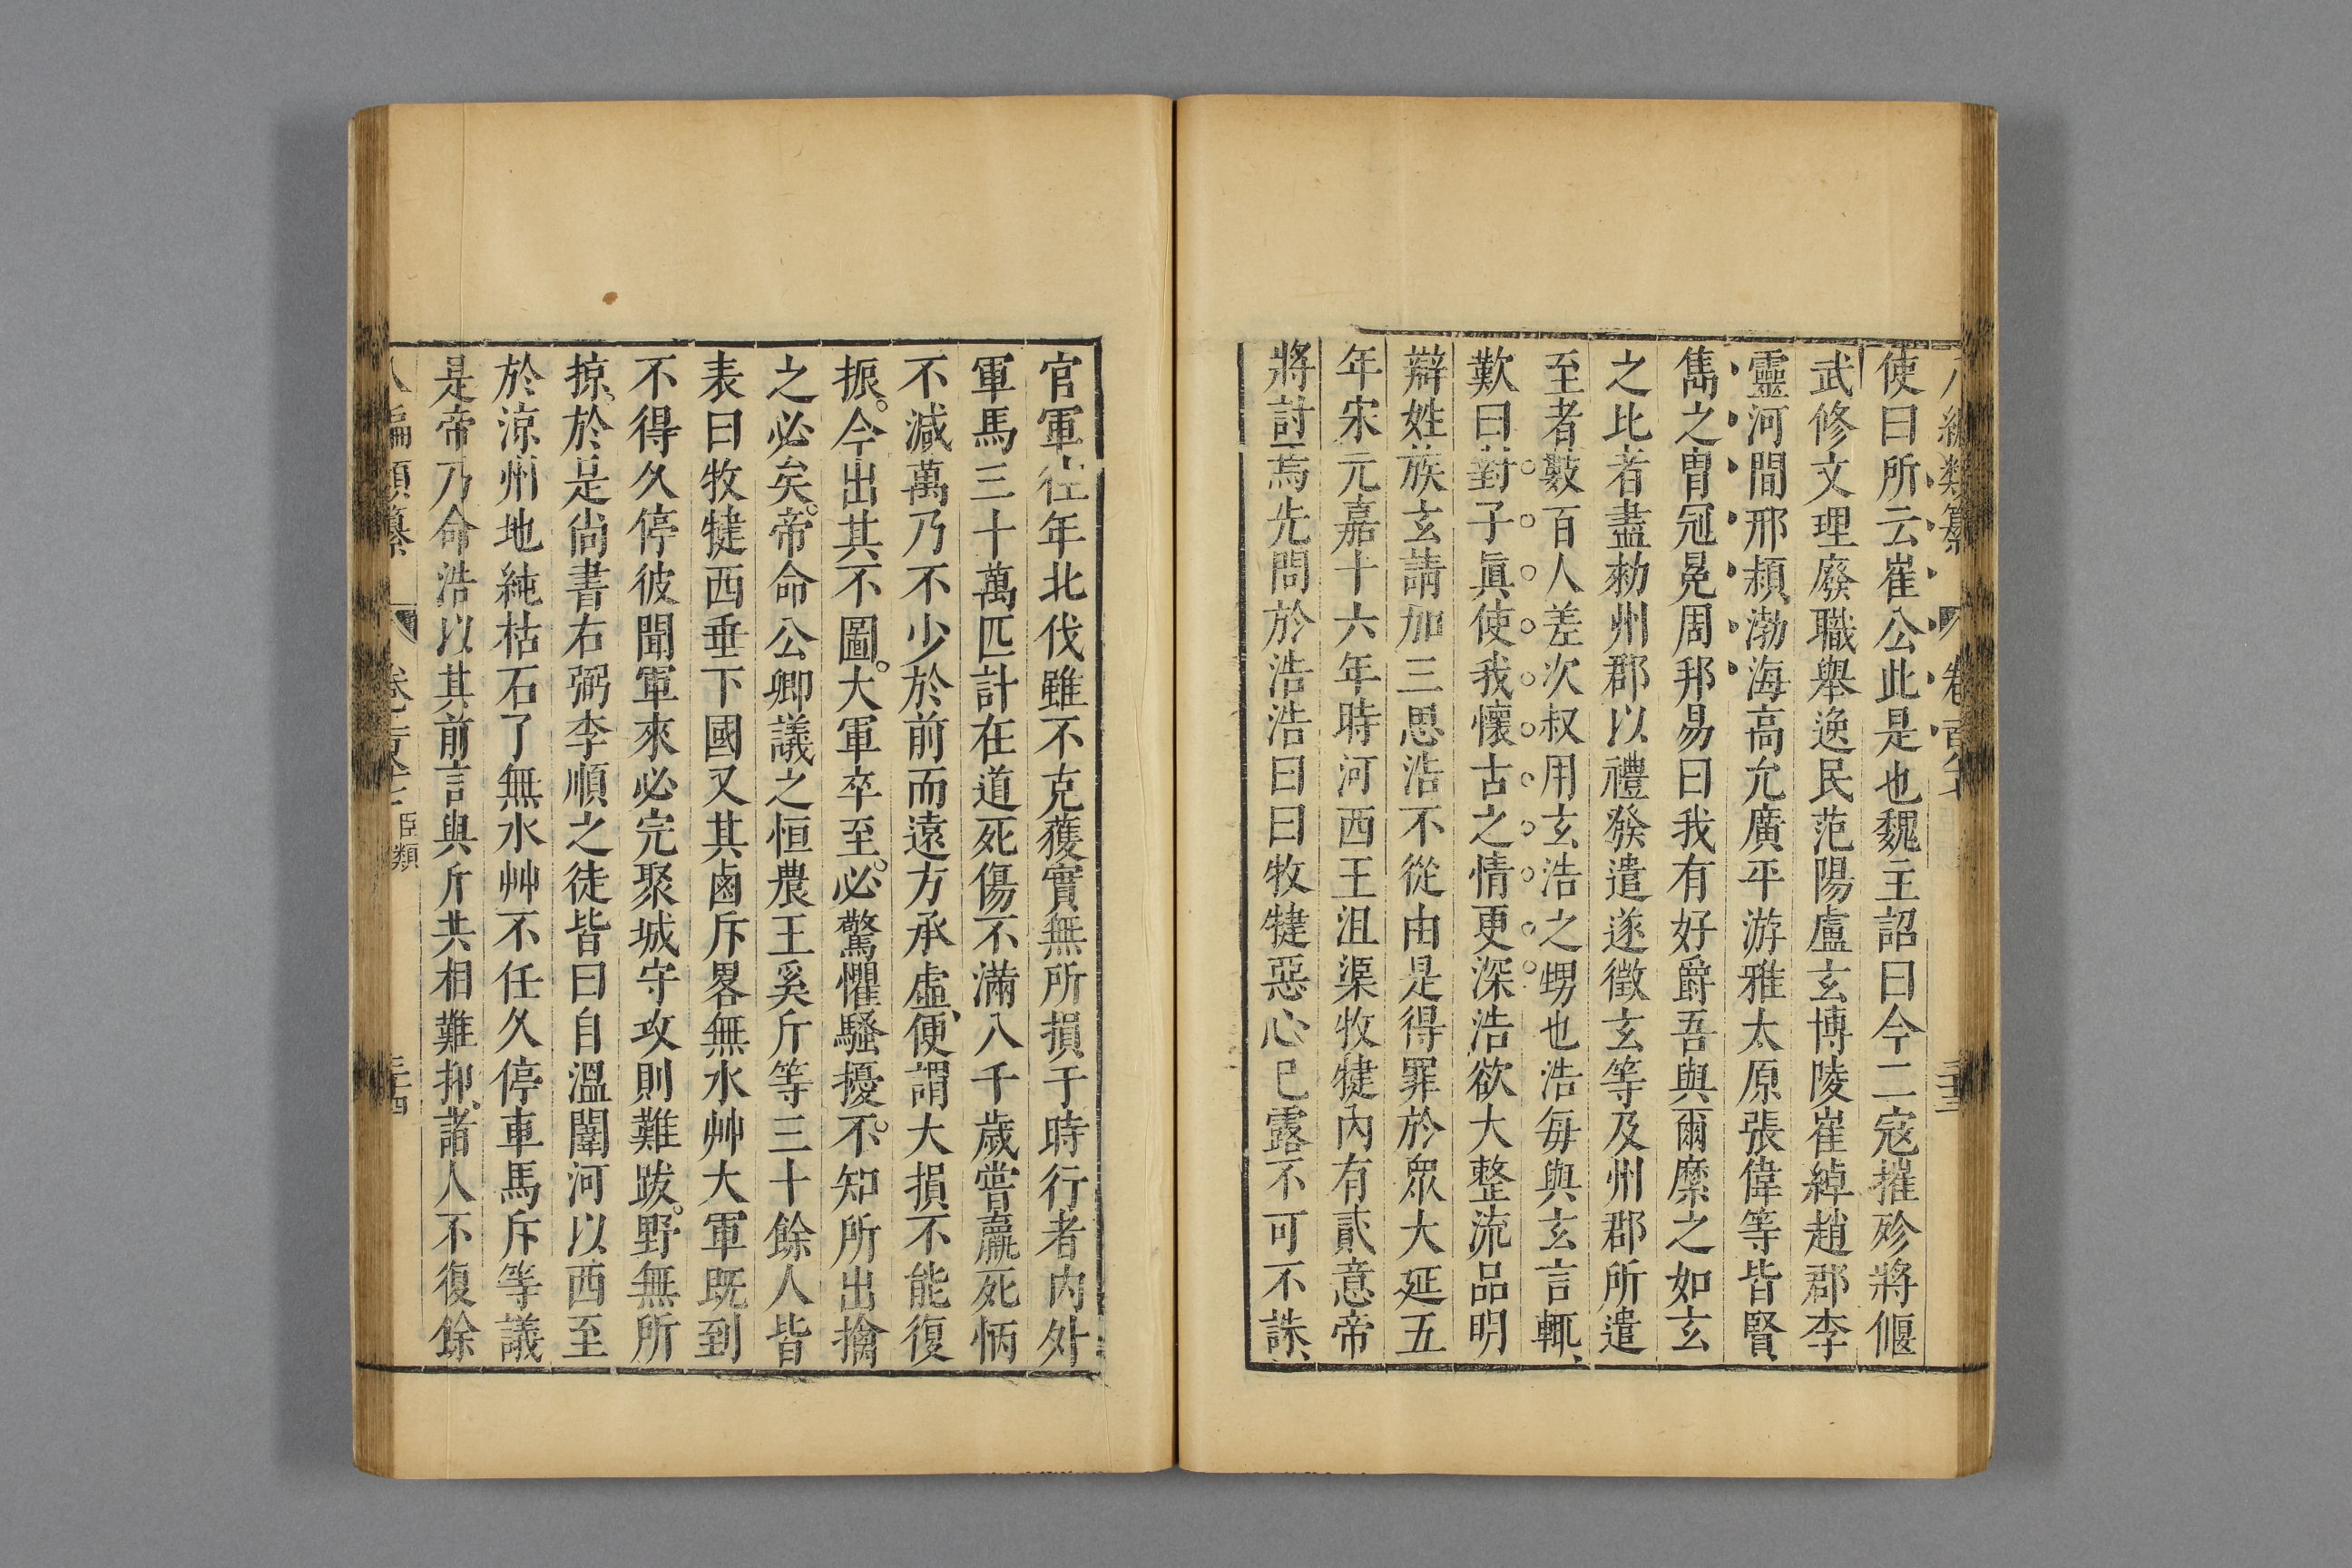 使曰所云崔公此是也魏主詔曰今二寇摧殄將偃
武修文理廢職舉逸民范陽盧玄博陵崔綽趙郡李
靈河間邢潁渤海高允廣平游雅太原張偉等皆賢
雋之冑冠冕周邦易曰我有好爵吾與爾縻之如玄
之比者盡勅州郡以禮發遣遂徵玄等及州郡所遣
至者數百人差次叔用玄浩之甥也浩毎與玄言輒
歎曰對子眞使我懷古之情更深浩欲大整流品明
辯姓族玄請加三思浩不從由是得罪於衆大延五
年宋元嘉十六年時河西王沮渠牧犍內有貳意帝
將討焉先問於浩浩曰曰牧犍惡心已露不可不誅
官軍往年北伐雖不克獲實無所損于時行者內外
軍馬三十萬匹計在道死傷不滿八千歲嘗羸死恆
不減萬乃不少於前而遠方承虛便謂大損不能復
振今出其不圖大軍卒至必驚懼騷擾不知所出擒
之必矣帝命公卿議之恒農王奚斤等三十餘人皆
表曰牧犍西垂下國又其鹵斥畧無水艸大軍既到
不得久停彼聞軍來必完聚城守攻則難跋野無所
掠於是尙書右弼李順之徒皆曰自溫圍河以西至
於涼州地純枯石了無水艸不任久停車馬斥等議
是帝乃命浩以其前言與斤共相難抑諸人不復餘
八編類纂 臣類